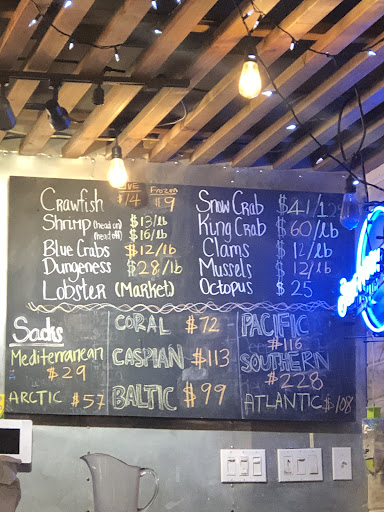 LIVE Frozen
Crawfish $14 $9
Shrimp (head on) $13/lb
(head off) $16/lb
Blue Crabs $12/lb
Dungeness $28/lb
Lobster (Market)
Snow Crab $41/
King Crab $60/lb
Clams $12/lb
Mussels $12/lb
Octopus $25
Sacks
Mediterranean
$29
ARCTIC $57
CORAL $72
CASPIAN $113
BALTIC $99
PACIFIC
$116
SOUTHERN
$228
ATLANTIC $108